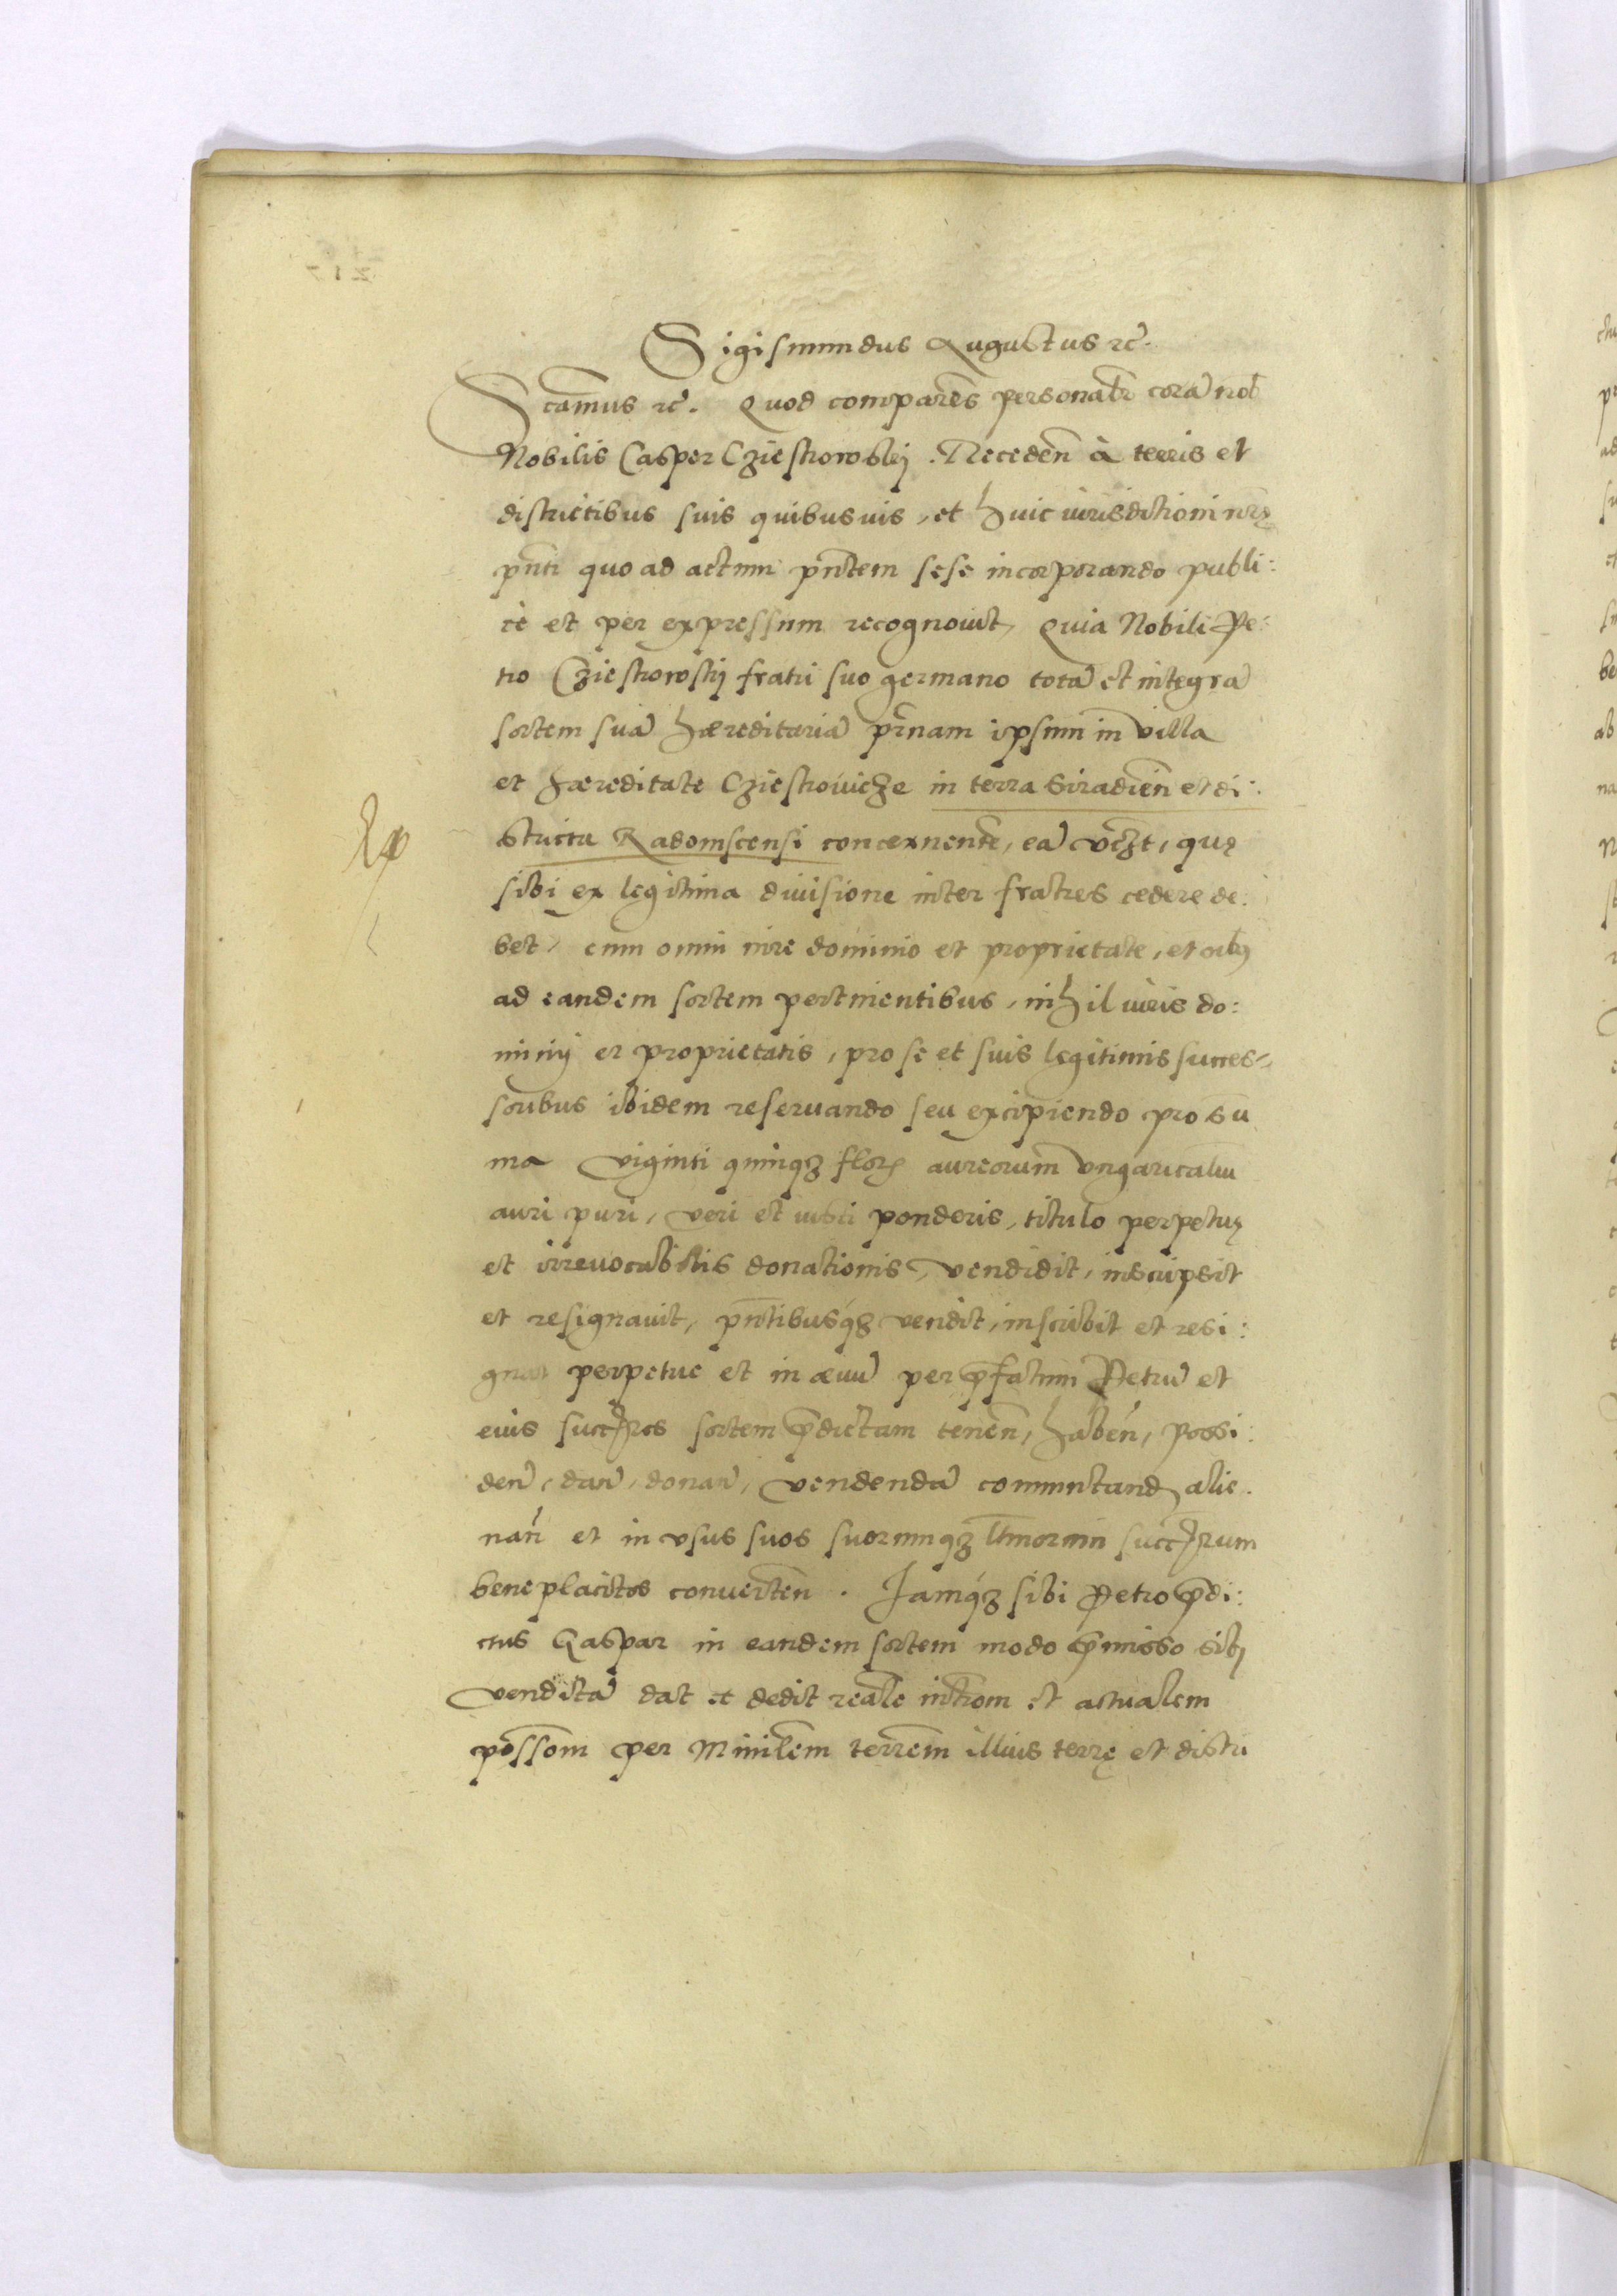 Sigismundus Augustus etc̃.
Scam̃us etc̃. Quod comparẽs personalr̃ corã nob̃
Nobilis Casper Cziestrowskij. Receden̄ à terris et
districtibus suis quibusuis, et huic iurisdictioni nr̃ę
pn̄ti quo ad actum pn̄tem sese incorporando publi:
cè et per expressum recognouit, Quia Nobili Pe:
tro Cziestrowskij fratri suo germano totã et integrã
sortem suã hæreditariã pr̃nam ipsum in villa
et hæreditate Cziestrouicze in terra Siradien̄ et di:
strictu Radomscensi concernentẽ, eã vĉzt, quę
sibi ex legitima diuisione inter fratres cedere de:
bet, cum omni iure dominio et proprietate, et oĩbȝ
ad eandem sortem pertinentibus, nihil iuris do:
minij et proprietatis, pro se et suis legitimis succes-
soribus ibidem reseruando seu excipiendo pro su
ma viginti quinqȝ flor̃ aureorum vngaricaliũ
auri puri, veri et iusti ponderis, titulo perpetuę
et irreuocabilis donationis, vendidit, inscripsit
et resignauit, pn̄tibusqȝ vendit, inscribit et resi:
gnat perpetue et in æuũ per p̃fatum Petrũ et
eius succr̃es sortem p̃dictam tenen̄, haben̄, possi:
den̄, dan̄, donan̄, vendendã commutand alie.
nan̄ et in vsus suos suorumqȝ ltm̃orum succr̃rum
beneplacitos conuerten̄. Jamqȝ sibi Petro p̃di:
ctus Gaspar in eandem sortem modo p̃misso sibj
venditã dat et dedit reale intr̃om et actualem
possom̃ per Minilem̃ terrem̃ illius terrę et distri